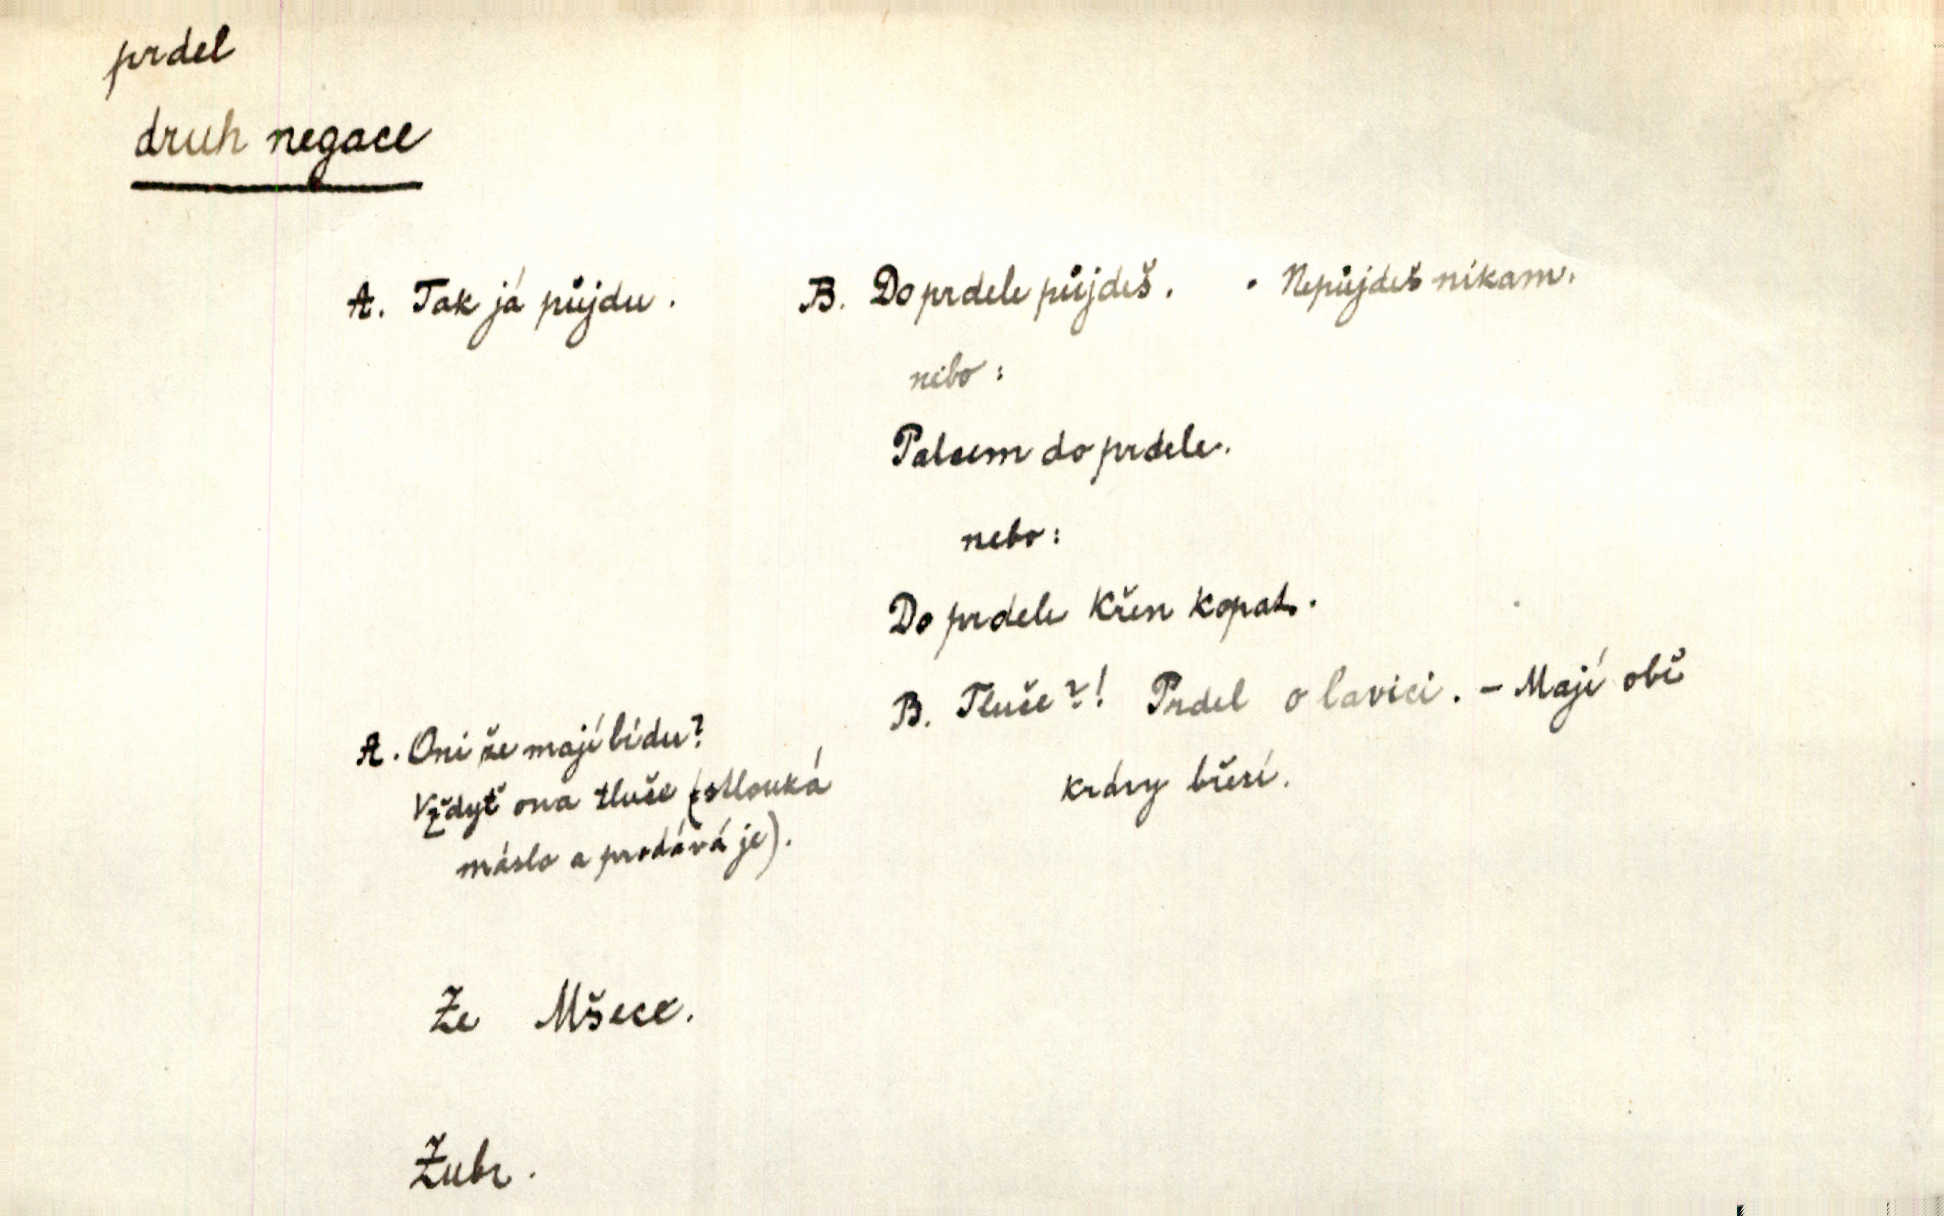 prdel
druh negace
A. Tak já půjdu. B. Do prdele půjdeš. • Nepůjdeš nikam.
nebo:
Palcem do prdele.
nebo:
Do prdele křen kopat.
B. Tluče?! Prdel o lavici. – Mají obě
A. Oni že mají bídu?
Vždyť ona tluče (stlouká
krávy březí.
máslo a prodává je).
Ze Mšece.
Žubr.